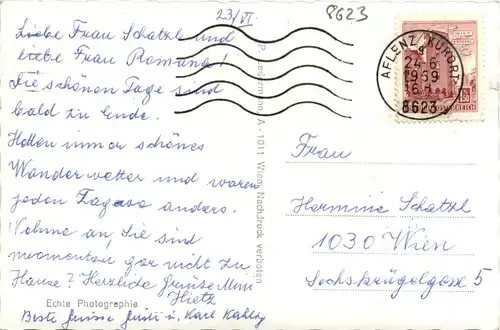 23/VI
8623
Liebe Frau Schatzl und
liebe Frau Romana!
Die schönen Tage sind
bald zu Ende.
Hatten immer schönes
Wanderwetter und waren
jeden Tag wo anders.
Nehme an, Sie sind
momentan gar nicht zu
Hause? Herzliche Grüsse
Hietz
Beste Grüsse u. Karl
Echte Photographie
A - 1011 Wien, Nachdruck verboten
AFLENZ KURORT
24.6.
1959
16
8623
ÖSTERREICH
Frau
Hermine Schatzl
1030 Wien
Sechskrügelgasse 5